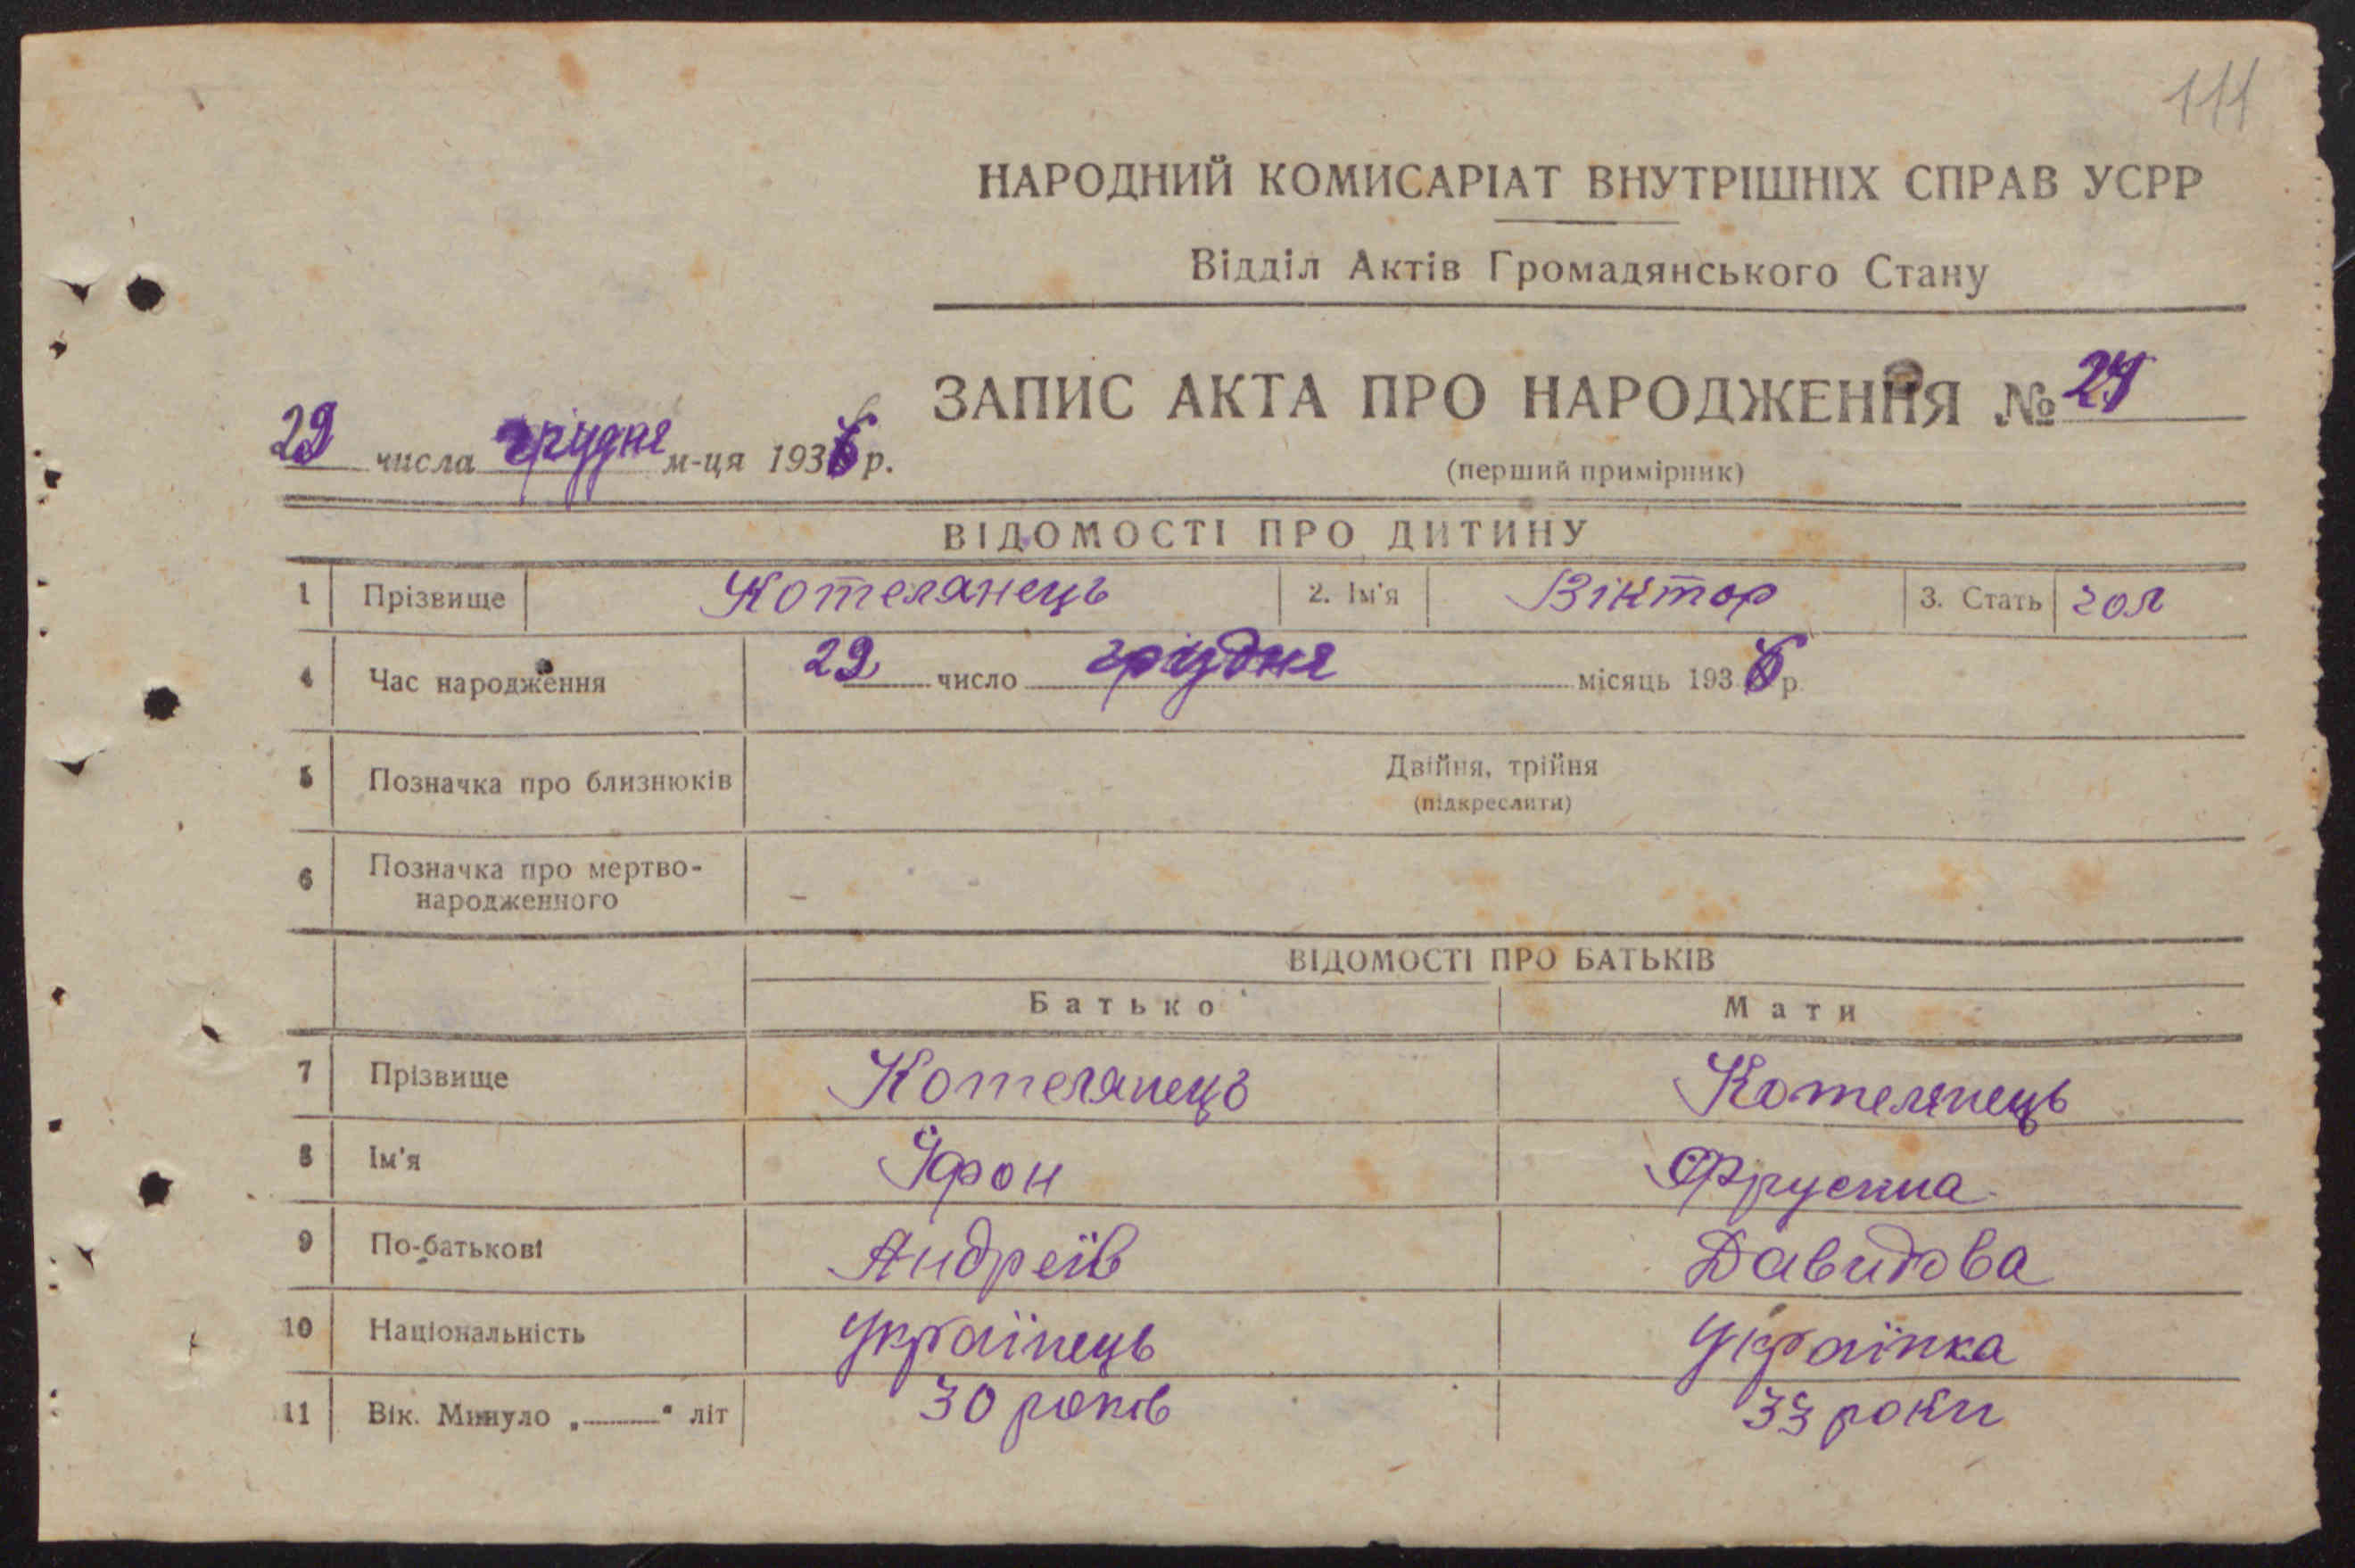 111
НАРОДНИЙ КОМИСАРІАТ ВНУТРІШНІХ СПРАВ УСРР
Відділ Актів Громадянського Стану
ЗАПИС АКТА ПРО НАРОДЖЕННЯ №
29 числа грудня м-ця 1936 р.
(перший примірник)
ВІДОМОСТІ ПРО ДИТИНУ
1 Прізвище Котелянець 2. Ім'я Віктор 3. Стать чол
4 Час народження 29 число грудня місяць 1936 р.
5 Позначка про близнюків Двійня, трійня
(підкреслити)
6 Позначка про мертво-
народженного –
ВІДОМОСТІ ПРО БАТЬКІВ
Батько Мати
7 Прізвище Котелянець Котелянець
8 Ім'я
9 По-батькові Андреїв Давидова
10 Національність Українець Українка
11 Вік. Минуло „ “ літ 30 років 33 роки